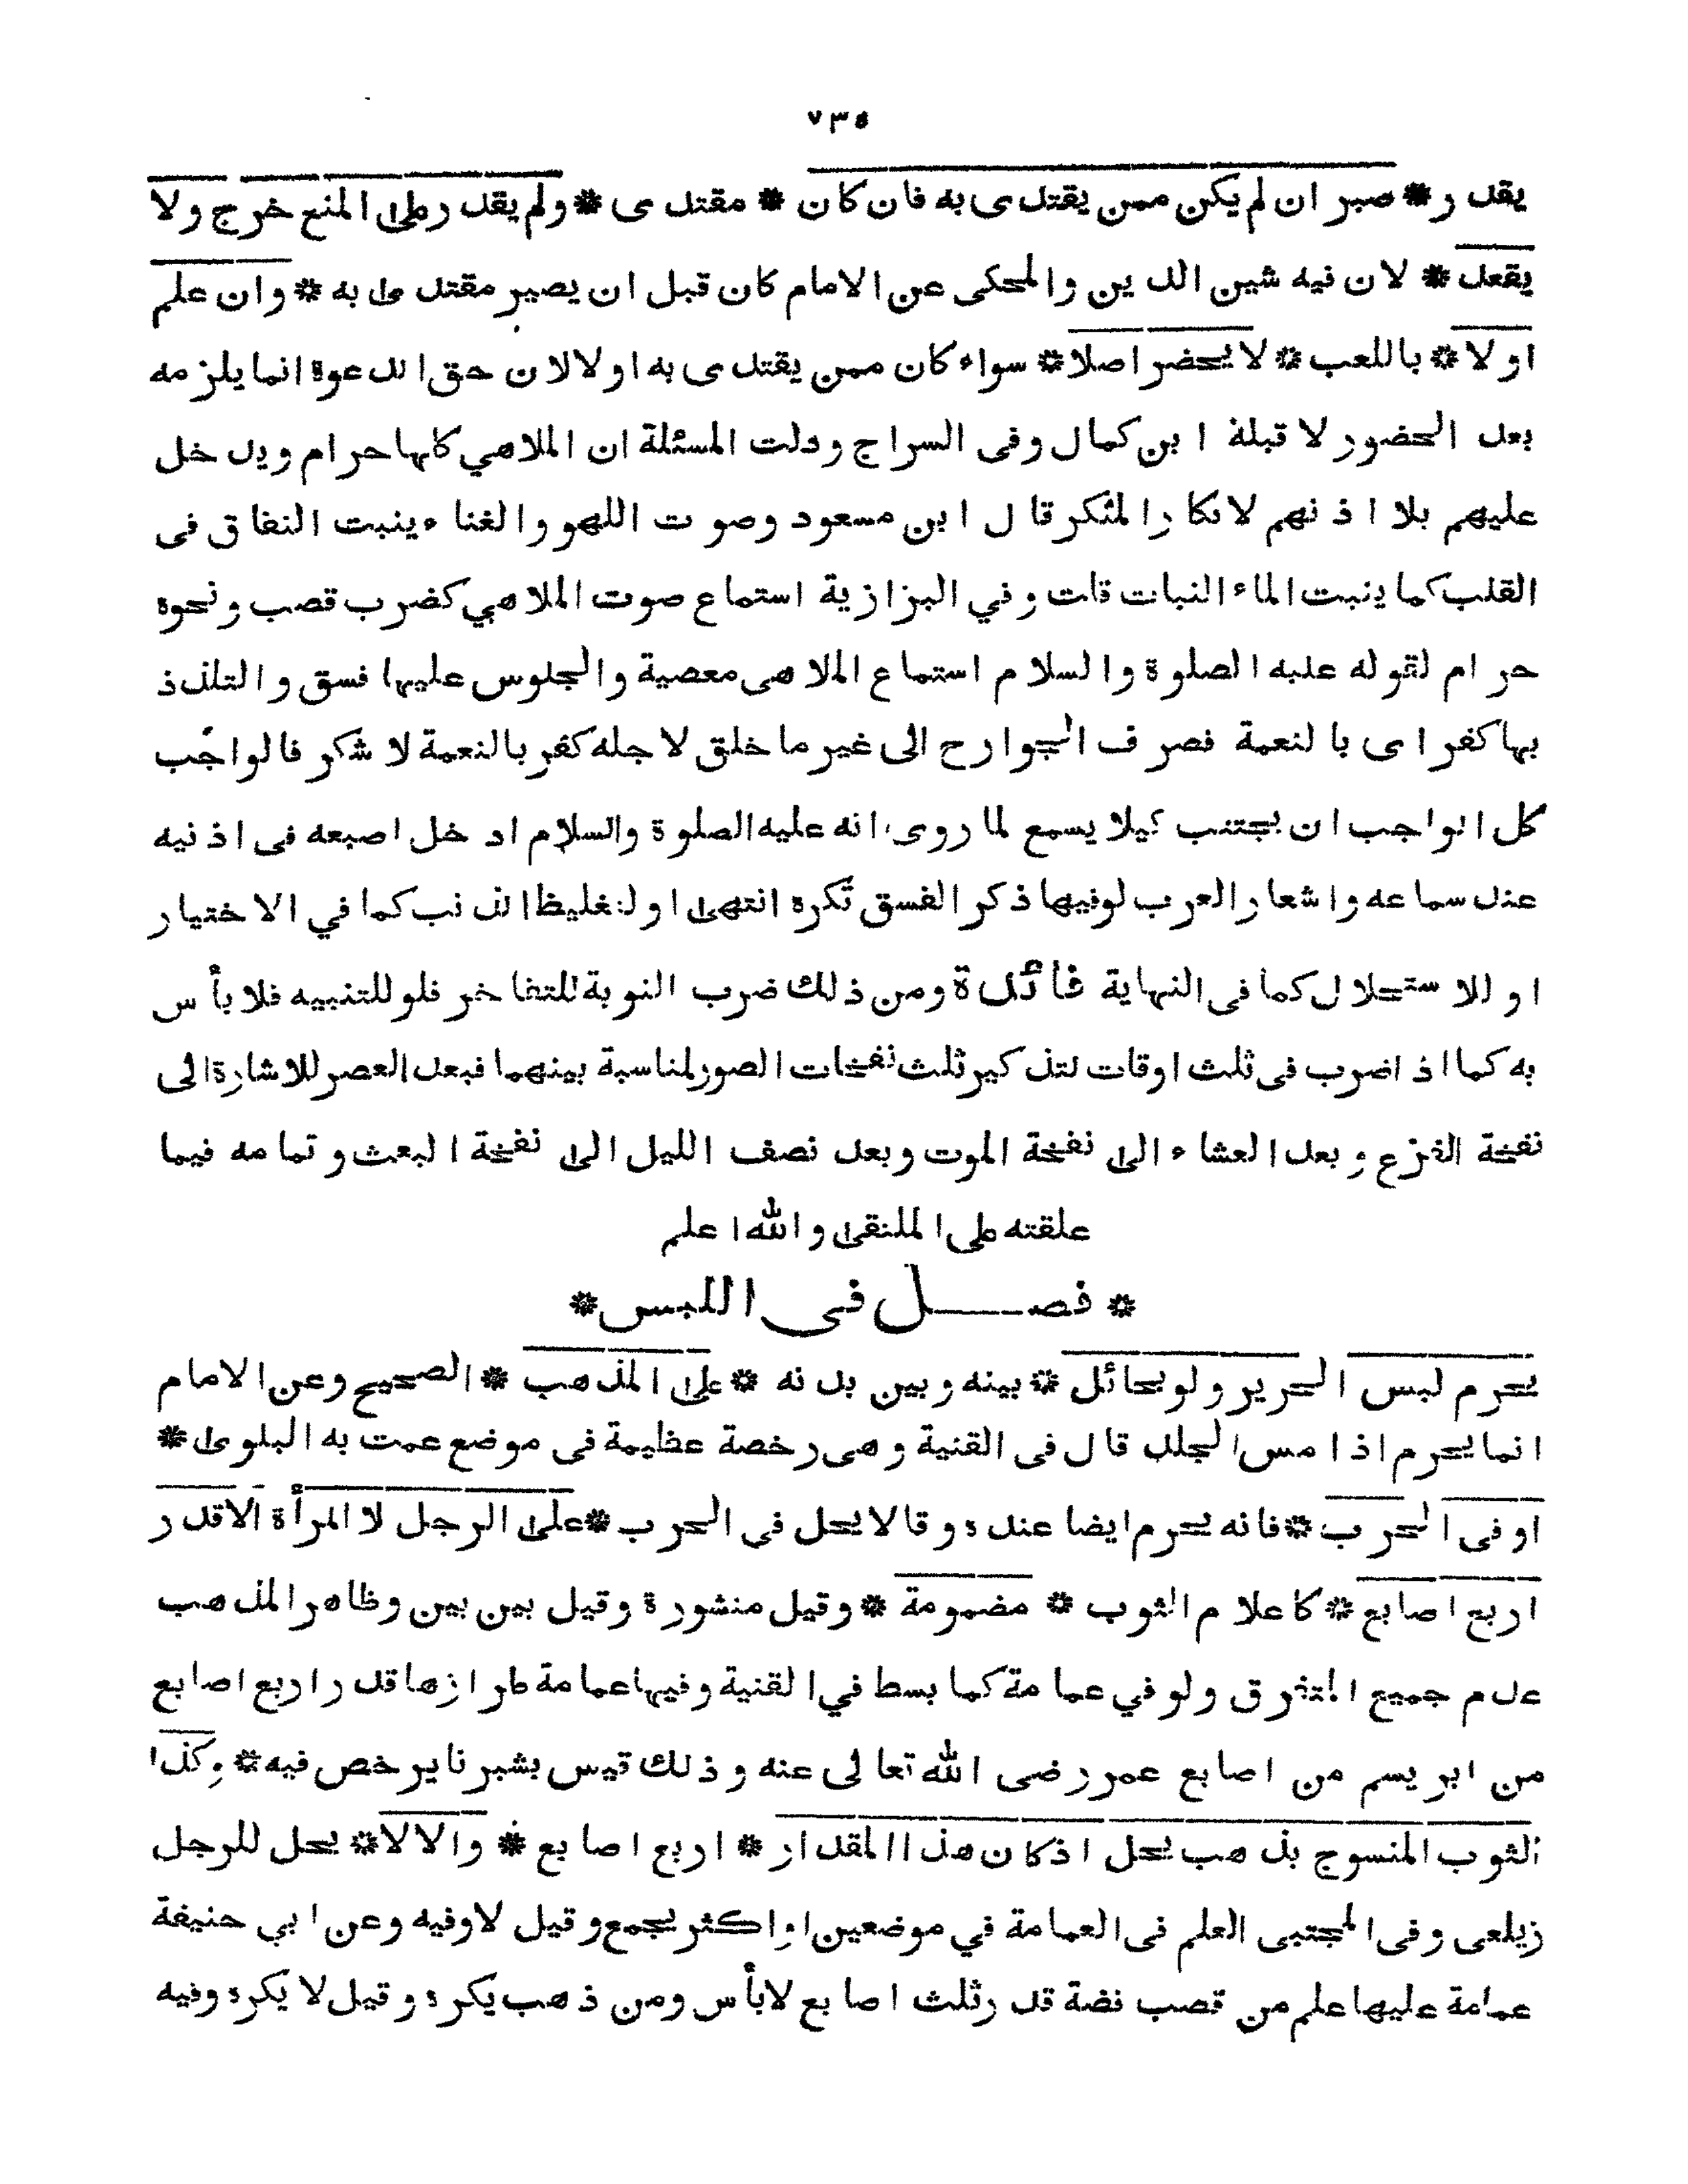 ٧٣٥
يقدر * صبر ان لم يكن ممن يقتدى به فان كان * مقتدى * ولم يقدر على المنع خرج ولا
يقعد * لان فيه شين الدين والمحكى عن الامام كان قبل ان يصير مقتدى به * وان علم
اولا * باللعب * لا يحضر اصلا * سواء كان ممن يقتدى به اولا لان حق الدعوة انما يلزمه
بعد الحضور لا قبله ابن كمال وفى السراج ودلت المسئلة ان الملاهي كلها حرام ويدخل
عليهم بلا اذنهم لانكار المنكر قال ابن مسعود وصوت اللهو والغناء ينبت النفاق فى
القلب كما ينبت الماء النبات قلت وفي البزازية استماع صوت الملاهي كضرب قصب ونحوه
حرام لقوله عليه الصلوة والسلام استماع الملاهى معصية والجلوس عليها فسق والتلذذ
بها كفر اى بالنعمة فصرف الجوارح الى غير ما خلق لاجله كفر بالنعمة لا شكر فالواجب
كل الواجب ان يجتنب كيلا يسمع لما روى انه عليه الصلوة والسلام ادخل اصبعه فى اذنيه
عند سماعه واشعار العرب لوفيها ذكر الفسق تكره انتهى او لتغليظ الذنب كما في الاختيار
او للاستحلال كما فى النهاية فائدة ومن ذلك ضرب النوبة للتفاخر فلو للتنبيه فلا بأس
به كما اذا ضرب فى ثلث اوقات لتذكير ثلث نفخات الصور لمناسبة بينهما فبعد العصر للاشارة الى
نفخة الفزع وبعد العشاء الى نفخة الموت وبعد نصف الليل الى نفخة البعث وتمامه فيما
علقته على الملتقى والله اعلم
* فصــــل فى اللبس *
يحرم لبس الحرير ولو بحائل * بينه وبين بدنه * على المذهب * الصحيح وعن الامام
انما يحرم اذا مس الجلد قال فى القنية وهى رخصة عظيمة فى موضع عمت به البلوى *
او فى الحرب * فانه يحرم ايضا عنده وقالا يحل فى الحرب * على الرجل لا المرأة الا قدر
اربع اصابع * كاعلام الثوب * مضمومة * وقيل منشورة وقيل بين بين وظاهر المذهب
عدم جميع المتفرق ولو في عمامة كما بسط في القنية وفيها عمامة طرازها قدر اربع اصابع
من ابريسم من اصابع عمر رضى الله تعالى عنه وذلك قيس بشبرنا يرخص فيه * وكذا
الثوب المنسوج بذهب يحل اذ كان هذا المقدار * اربع اصابع * والا لا * يحل للرجل
زيلعى وفى المجتبى العلم فى العمامة في موضعين او اكثر يجمع وقيل لا وفيه وعن ابي حنيفة
عمامة عليها علم من قصب فضة قدر ثلث اصابع لا بأس ومن ذهب يكره وقيل لا يكره وفيه